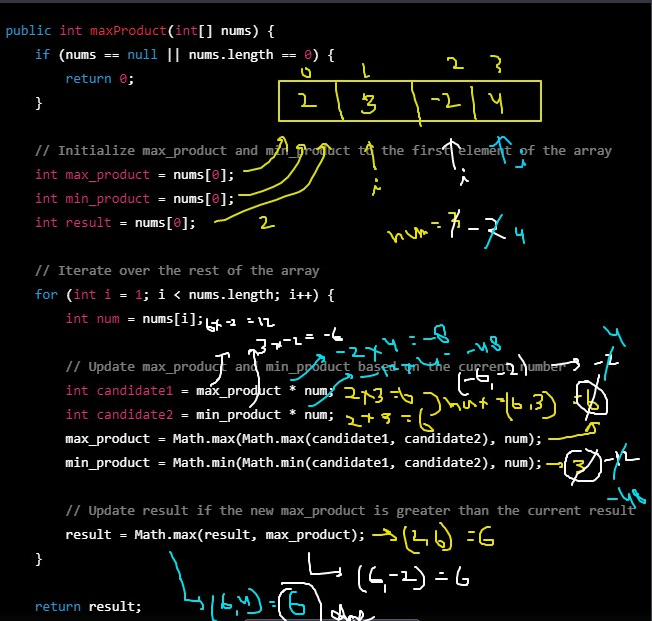 public int maxProduct(int[] nums) {
if (nums == null || nums.length == 0) {
return 0;
}
0 1 2 3
2 3 -2 4
// Initialize max_product and min_product to the first element of the array
int max_product = nums[0];
int min_product = nums[0];
i i i
int result = nums[0];
2
num = 3 -2 4
// Iterate over the rest of the array
for (int i = 1; i < nums.length; i++) {
int num = nums[i];
6x-2 = 12
3x-2 = -6
-2x4 = -8
-12x4 = -48
4
// Update max_product and min_product based on the current number
(-6,-2) -2
int candidate1 = max_product * num;
2x3=6
max=(6,3) =6
int candidate2 = min_product * num;
2x3=6
max_product = Math.max(Math.max(candidate1, candidate2), num);
min_product = Math.min(Math.min(candidate1, candidate2), num);
3 -12
-48
// Update result if the new max_product is greater than the current result
result = Math.max(result, max_product);
(2,6) = 6
}
(6,-2) = 6
(6,4) = 6
done
return result;